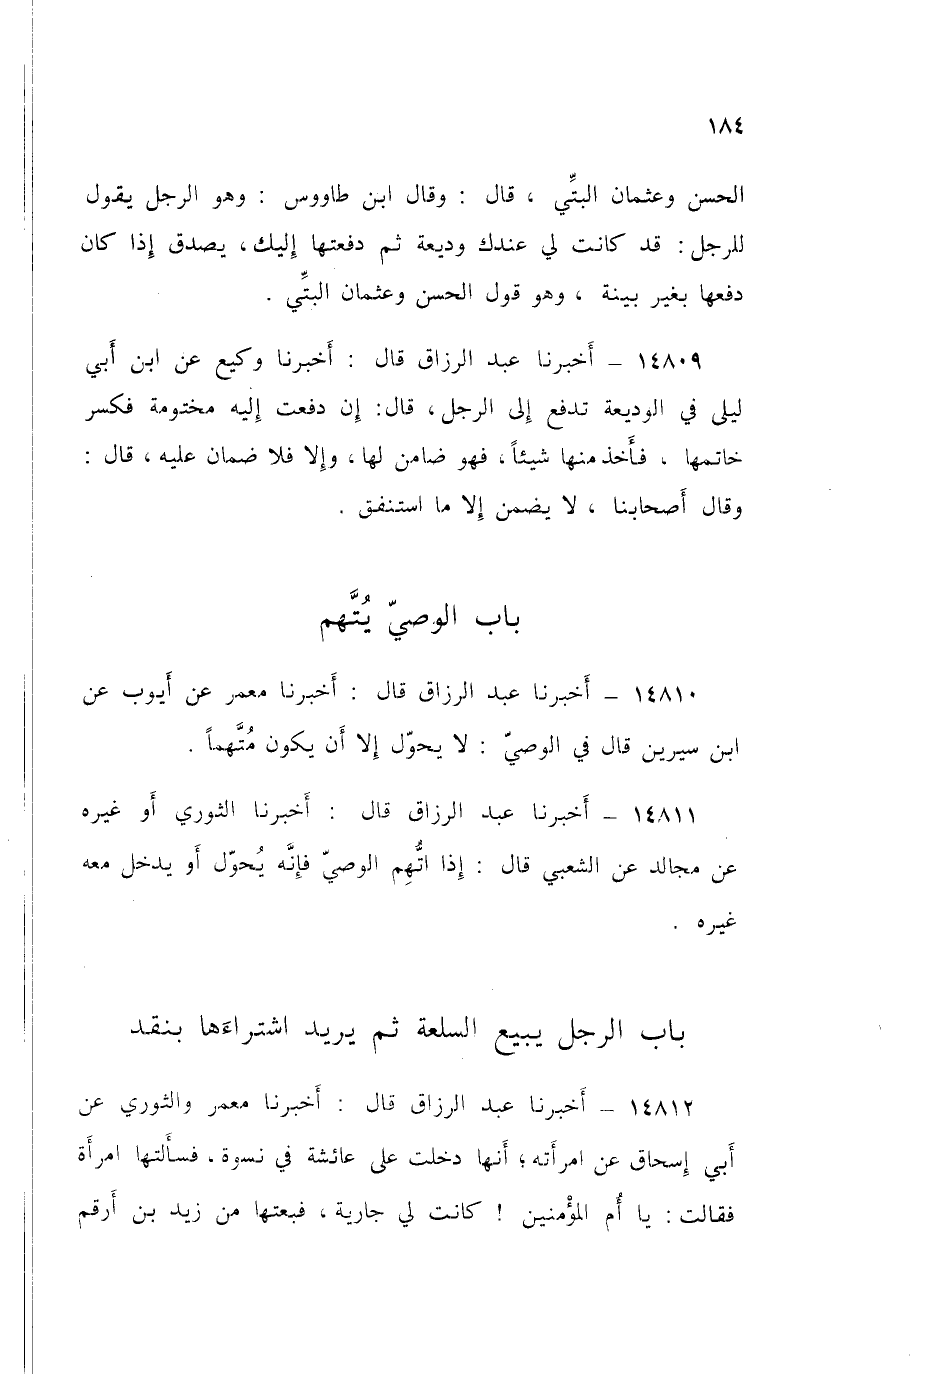 ١٨٤
الحسن وعثمان البتِّي ، قال : وقال ابن طاووس : وهو الرجل يقول
للرجل : قد كانت لي عندك وديعة ثم دفعتها إليك ، يصدق إذا كان
دفعها بغير بينة ، وهو قول الحسن وعثمان البتِّي .
١٤٨٠٩ – أخبرنا عبد الرزاق قال : أخبرنا وكيع عن ابن أبي
ليلى في الوديعة تدفع إلى الرجل ، قال : إن دفعت إليه مختومة فكسر
خاتمها ، فأخذ منها شيئاً ، فهو ضامن لها ، وإلا فلا ضمان عليه ، قال :
وقال أصحابنا ، لا يضمن إلا ما استنفق .
باب الوصيّ يُتَّهم
١٤٨١٠ – أخبرنا عبد الرزاق قال : أخبرنا معمر عن أيوب عن
ابن سيرين قال في الوصيّ : لا يحوّل إلا أن يكون مُتَّهماً .
١٤٨١١ – أخبرنا عبد الرزاق قال : أخبرنا الثوري أو غيره
عن مجالد عن الشعبي قال : إذا اتُّهِم الوصيّ فإنَّه يُحوّل أو يدخل معه
غيره .
باب الرجل يبيع السلعة ثم يريد اشتراءَها بنقد
١٤٨١٢ – أخبرنا عبد الرزاق قال : أخبرنا معمر والثوري عن
أبي إسحاق عن امرأته ؛ أنها دخلت على عائشة في نسوة ، فسألتها امرأة
فقالت : يا أُم المؤْمنين ! كانت لي جارية ، فبعتها من زيد بن أرقم